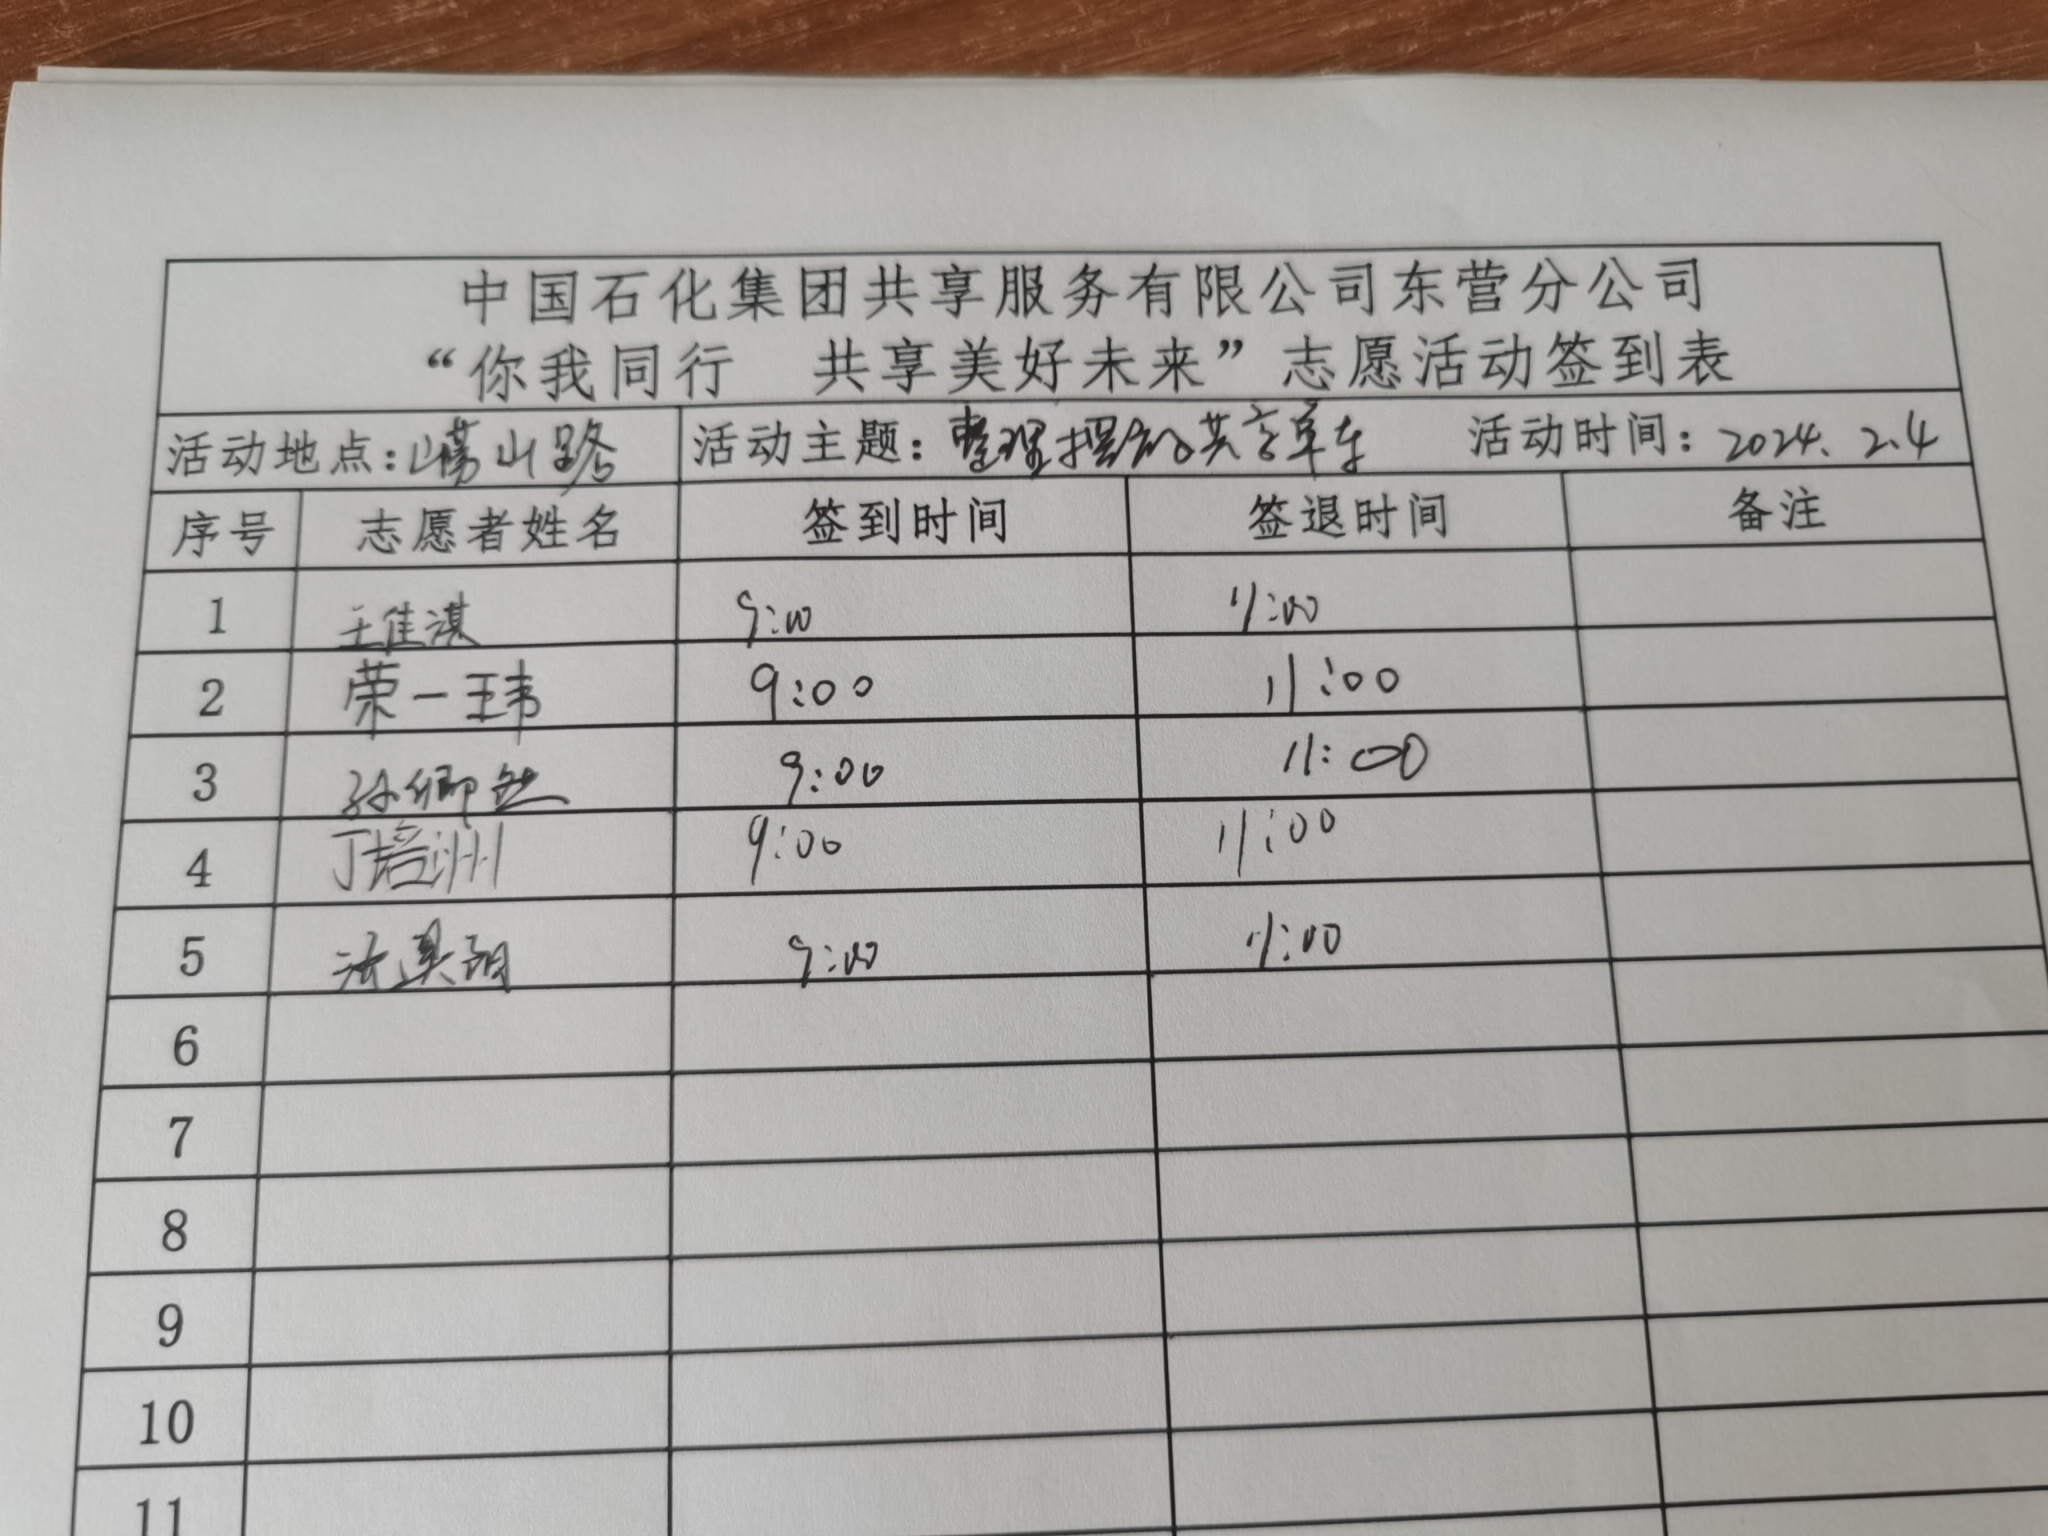 中国石化集团共享服务有限公司东营分公司
“你我同行　共享美好未来”志愿活动签到表
活动地点：崂山路　活动主题：整理摆放共享单车　活动时间：2024.2.4
序号　志愿者姓名　签到时间　签退时间　备注
1　王佳谋　9:00　11:00
2　荣一玮　9:00　11:00
3　孙卿然　9:00　11:00
4　丁培洲　9:00　11:00
5　9:00　11:00
6
7
8
9
10
11